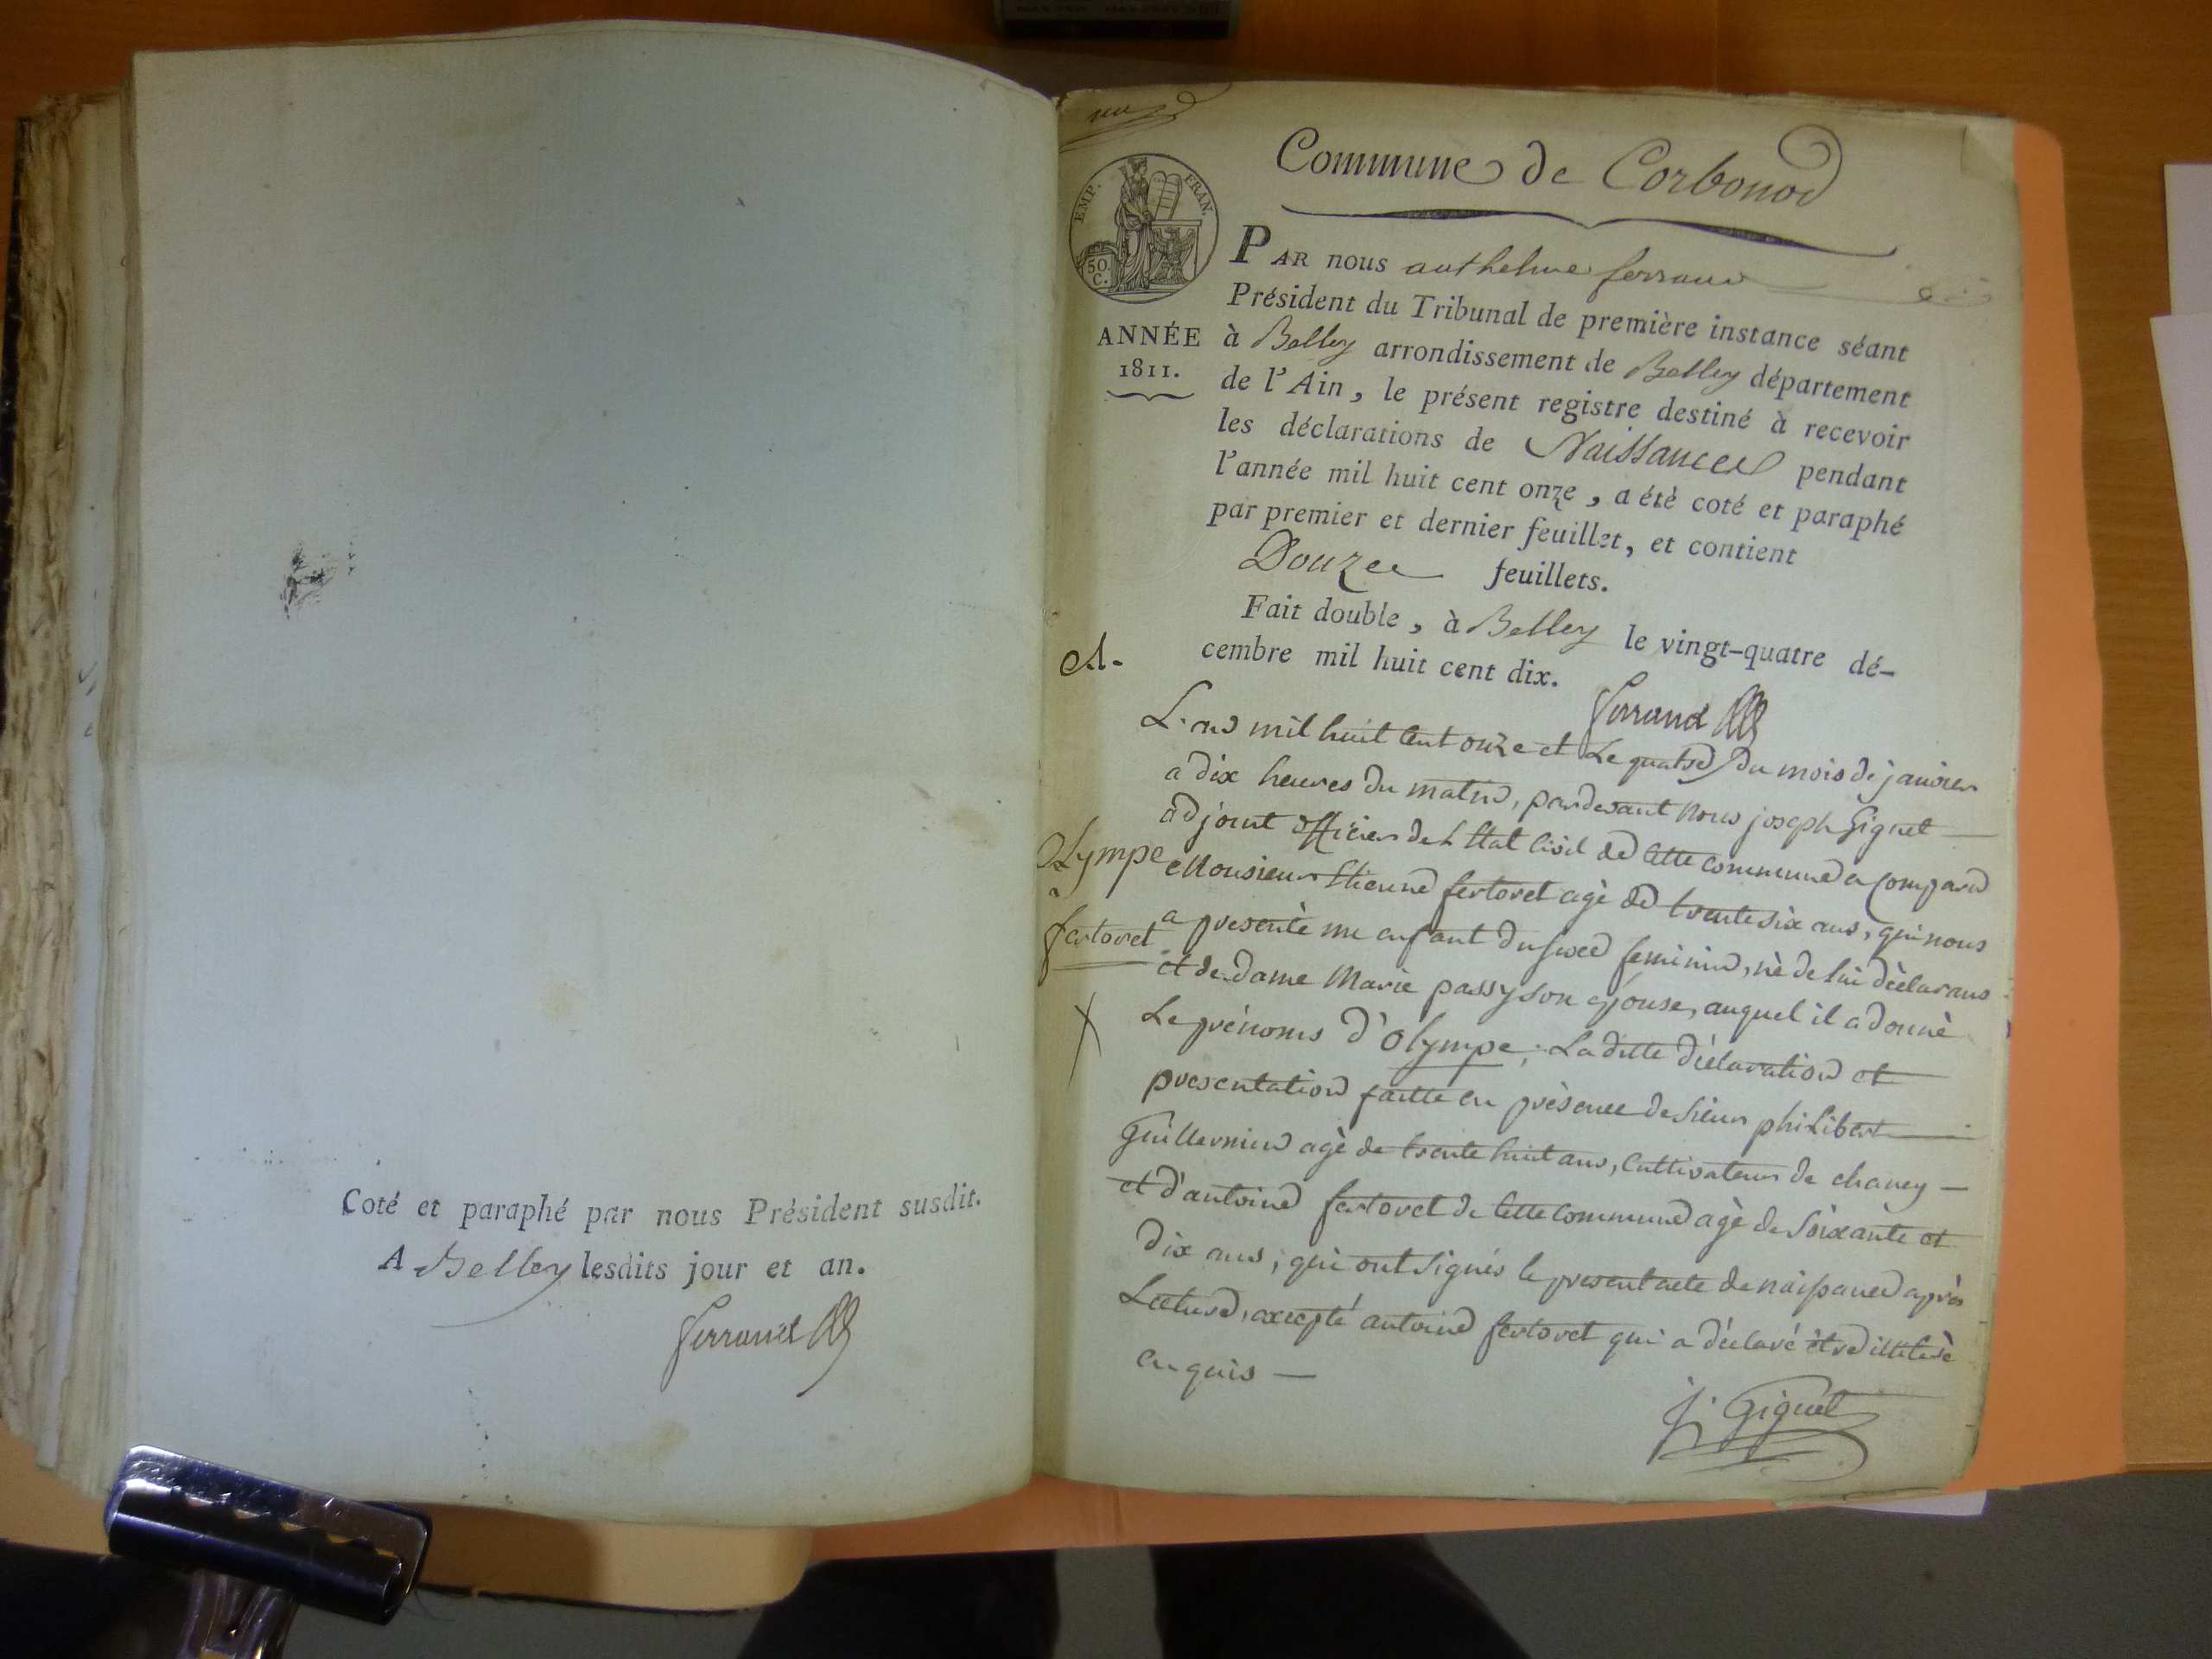 Coté et paraphé par nous Président susdit.
A Belley lesdits jour et an.
Ferrand
Commune de Corbonod
EMP. FRAN.
50.
C.
ANNÉE
1811.
PAR nous anthelme ferrand
Président du Tribunal de première instance séant
à Belley arrondissement de Belley département
de l'Ain, le présent registre destiné à recevoir
les déclarations de Naissances pendant
l'année mil huit cent onze, a été coté et paraphé
par premier et dernier feuillet, et contient
Douze feuillets.
Fait double, à Belley le vingt-quatre dé-
cembre mil huit cent dix.
Ferrand
L'an mil huit cent onze et Le quatre du mois de janvier
a dix heures du matin, pardevant nous joseph Giguet
adjoint officier de L'Etat Civil de Cette commune a comparu
Monsieur Etienne fertoret agè de trente six ans, qui nous
a presentè un enfant du sexe feminin, nè de lui dèclarans
et de dame Marie passy son epouse, auquel il a donnè
Le prénoms d'Olympe; La ditte déclaration et
presentation faitte en prèsence de sieur philibert
Guillermin agè de trente huit ans, Cultivateur de chaney
et d'antoine fertoret de Cette commune agè de soixante et
dix ans; qui ont signés le present acte de naissance après
Lecture, excepté antoine fertoret qui a déclaré être illitérè
enquis
Olympe
fertoret
J. Giguet